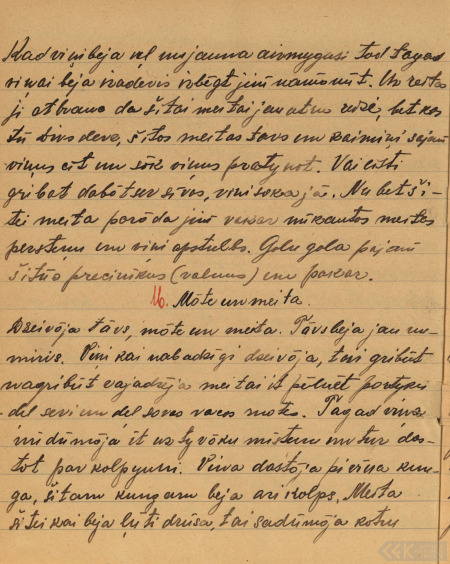 Kad viņi beja vel nu jauna aizmyguši tod tagad
viņai beja izadevīs izbēgt jim namonūt. Uz reita
ji atbrauce da šitai meitai jau otru reizē, bet kas
tū divs deve, šitos meitas tavs un kaimiņi sajam
viņus cīt un sōk viņus pratynot. Vai eisti
gribat dabōt sev sīvos, viņi soka jā. Nu bet ši-
tei meita parōda jim vakar nūkautos meitos
perstenu un viņi apstulbo. Golu gola pajam
šitūs precinīkus (valnus) un pakar.
16. Mōte un meita.
Dzeivōja tāvs, mōte un meita. Tāvs beja jau nu-
miris. Viņi kai nabadzīgi dzeivōja, tovi gribūt
nagribūt vajadzēja meitai īt pelnēt portyku
del sevi un del sovos vacos motes. Tagad viņa
īrīdūmōja īt uz tyvōku mīstenu un tur dos-
tot par kolpyuni. Viņa dastōja pi vīna kun-
ga, šitam kungam beja ari kolps. Meita
šitei kai beja ļūti drūsa, tai sadūmōja kotru